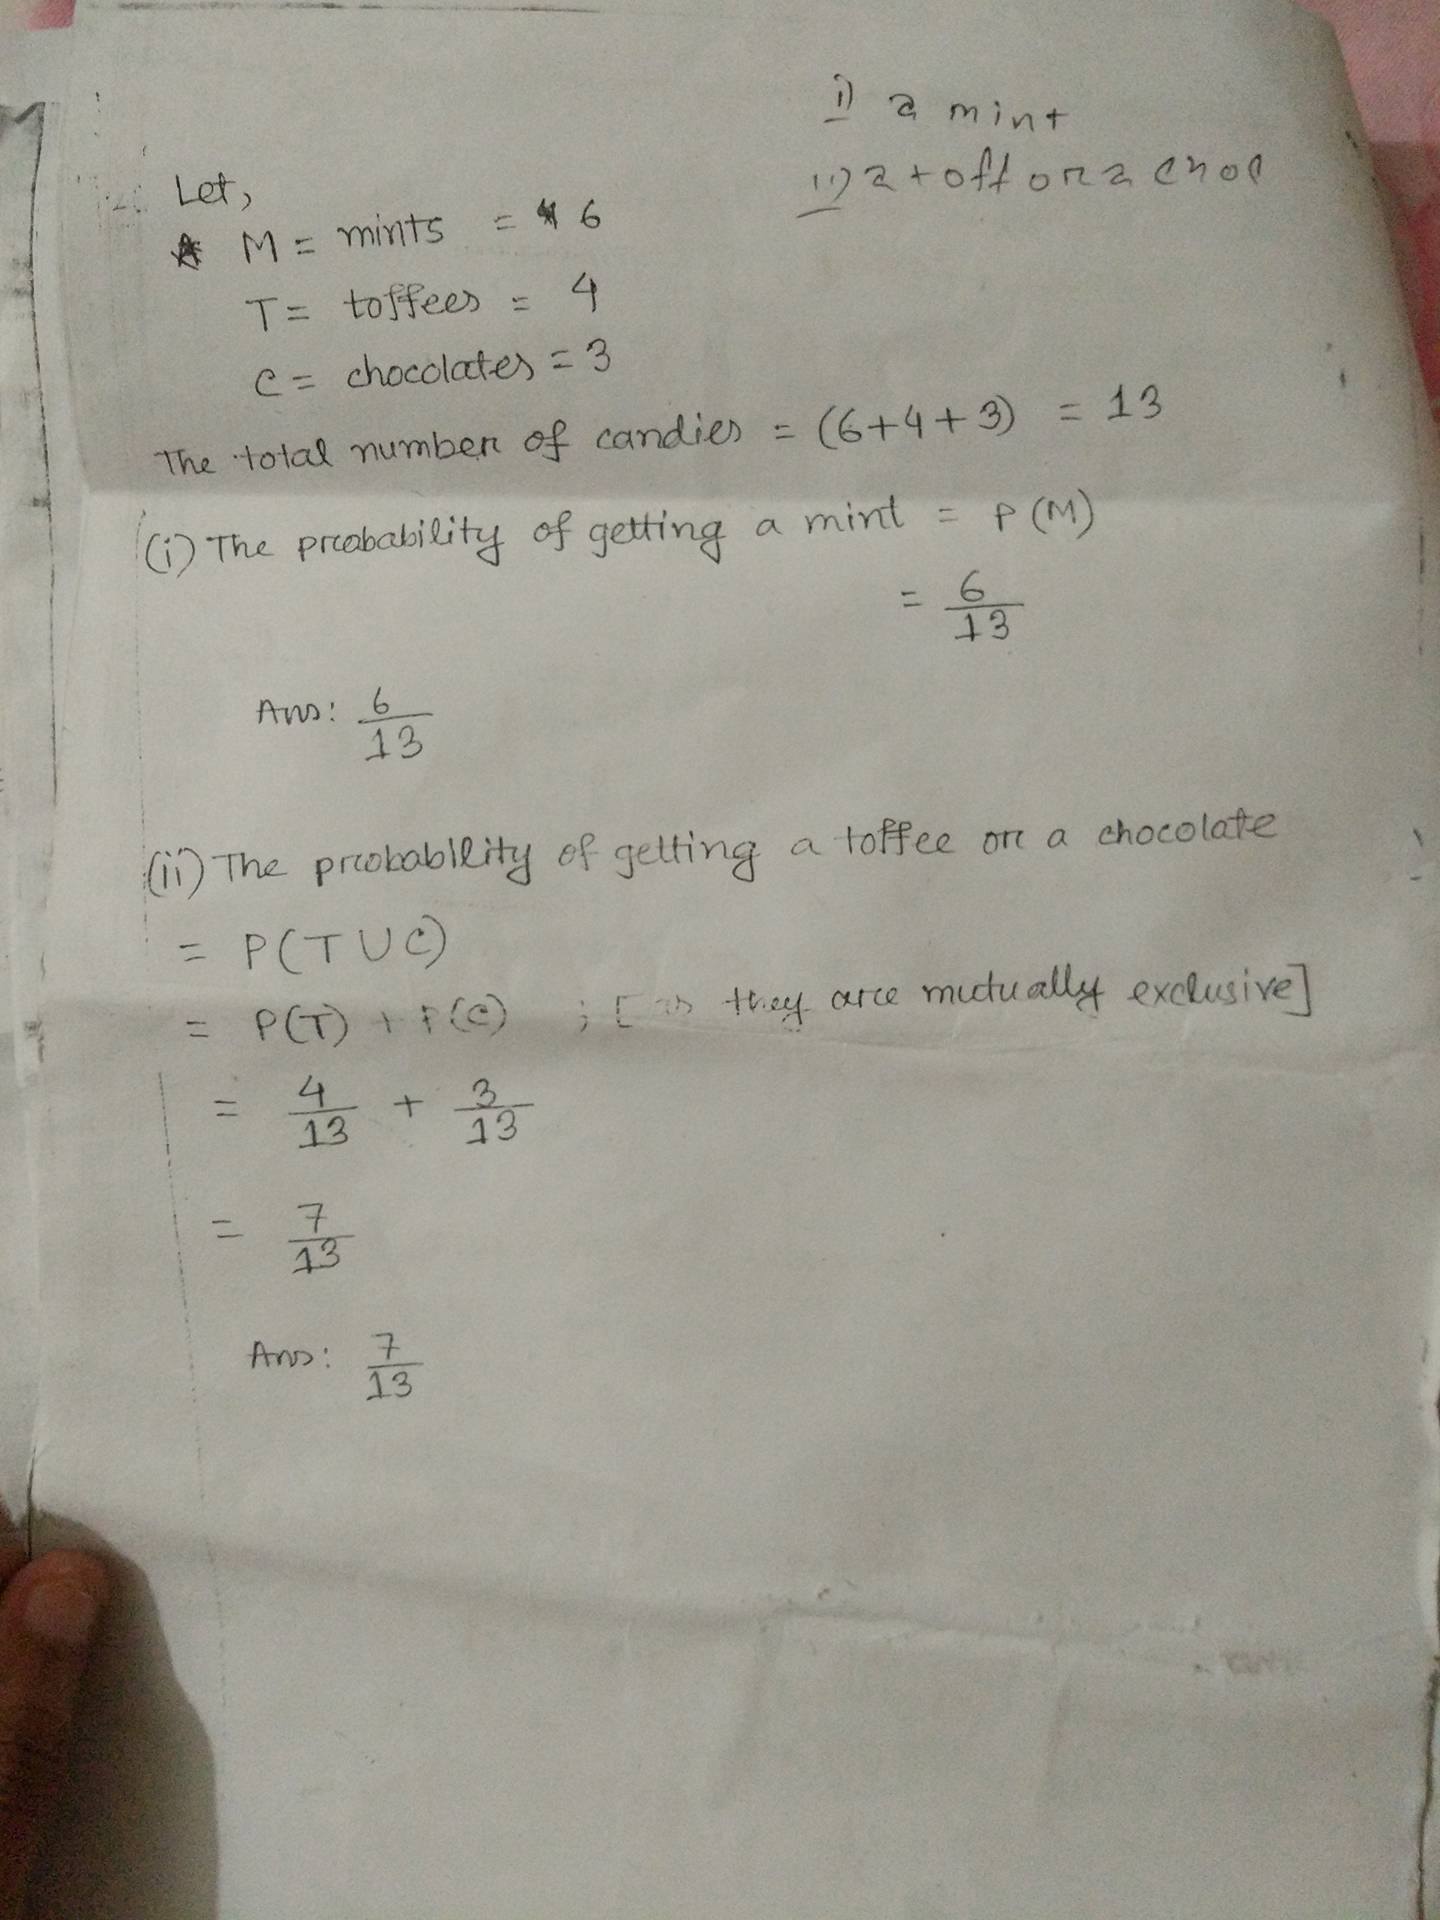 i) a mint
ii) a toff or a choc
Let,
M = mints = 6
T = toffees = 4
C = chocolates = 3
The total number of candies = (6+4+3) = 13
(i) The probability of getting a mint = P(M)
= 6/13
Ans: 6/13
(ii) The probability of getting a toffee or a chocolate
= P(T∪C)
= P(T) + P(C) ; [as they are mutually exclusive]
= 4/13 + 3/13
= 7/13
Ans: 7/13